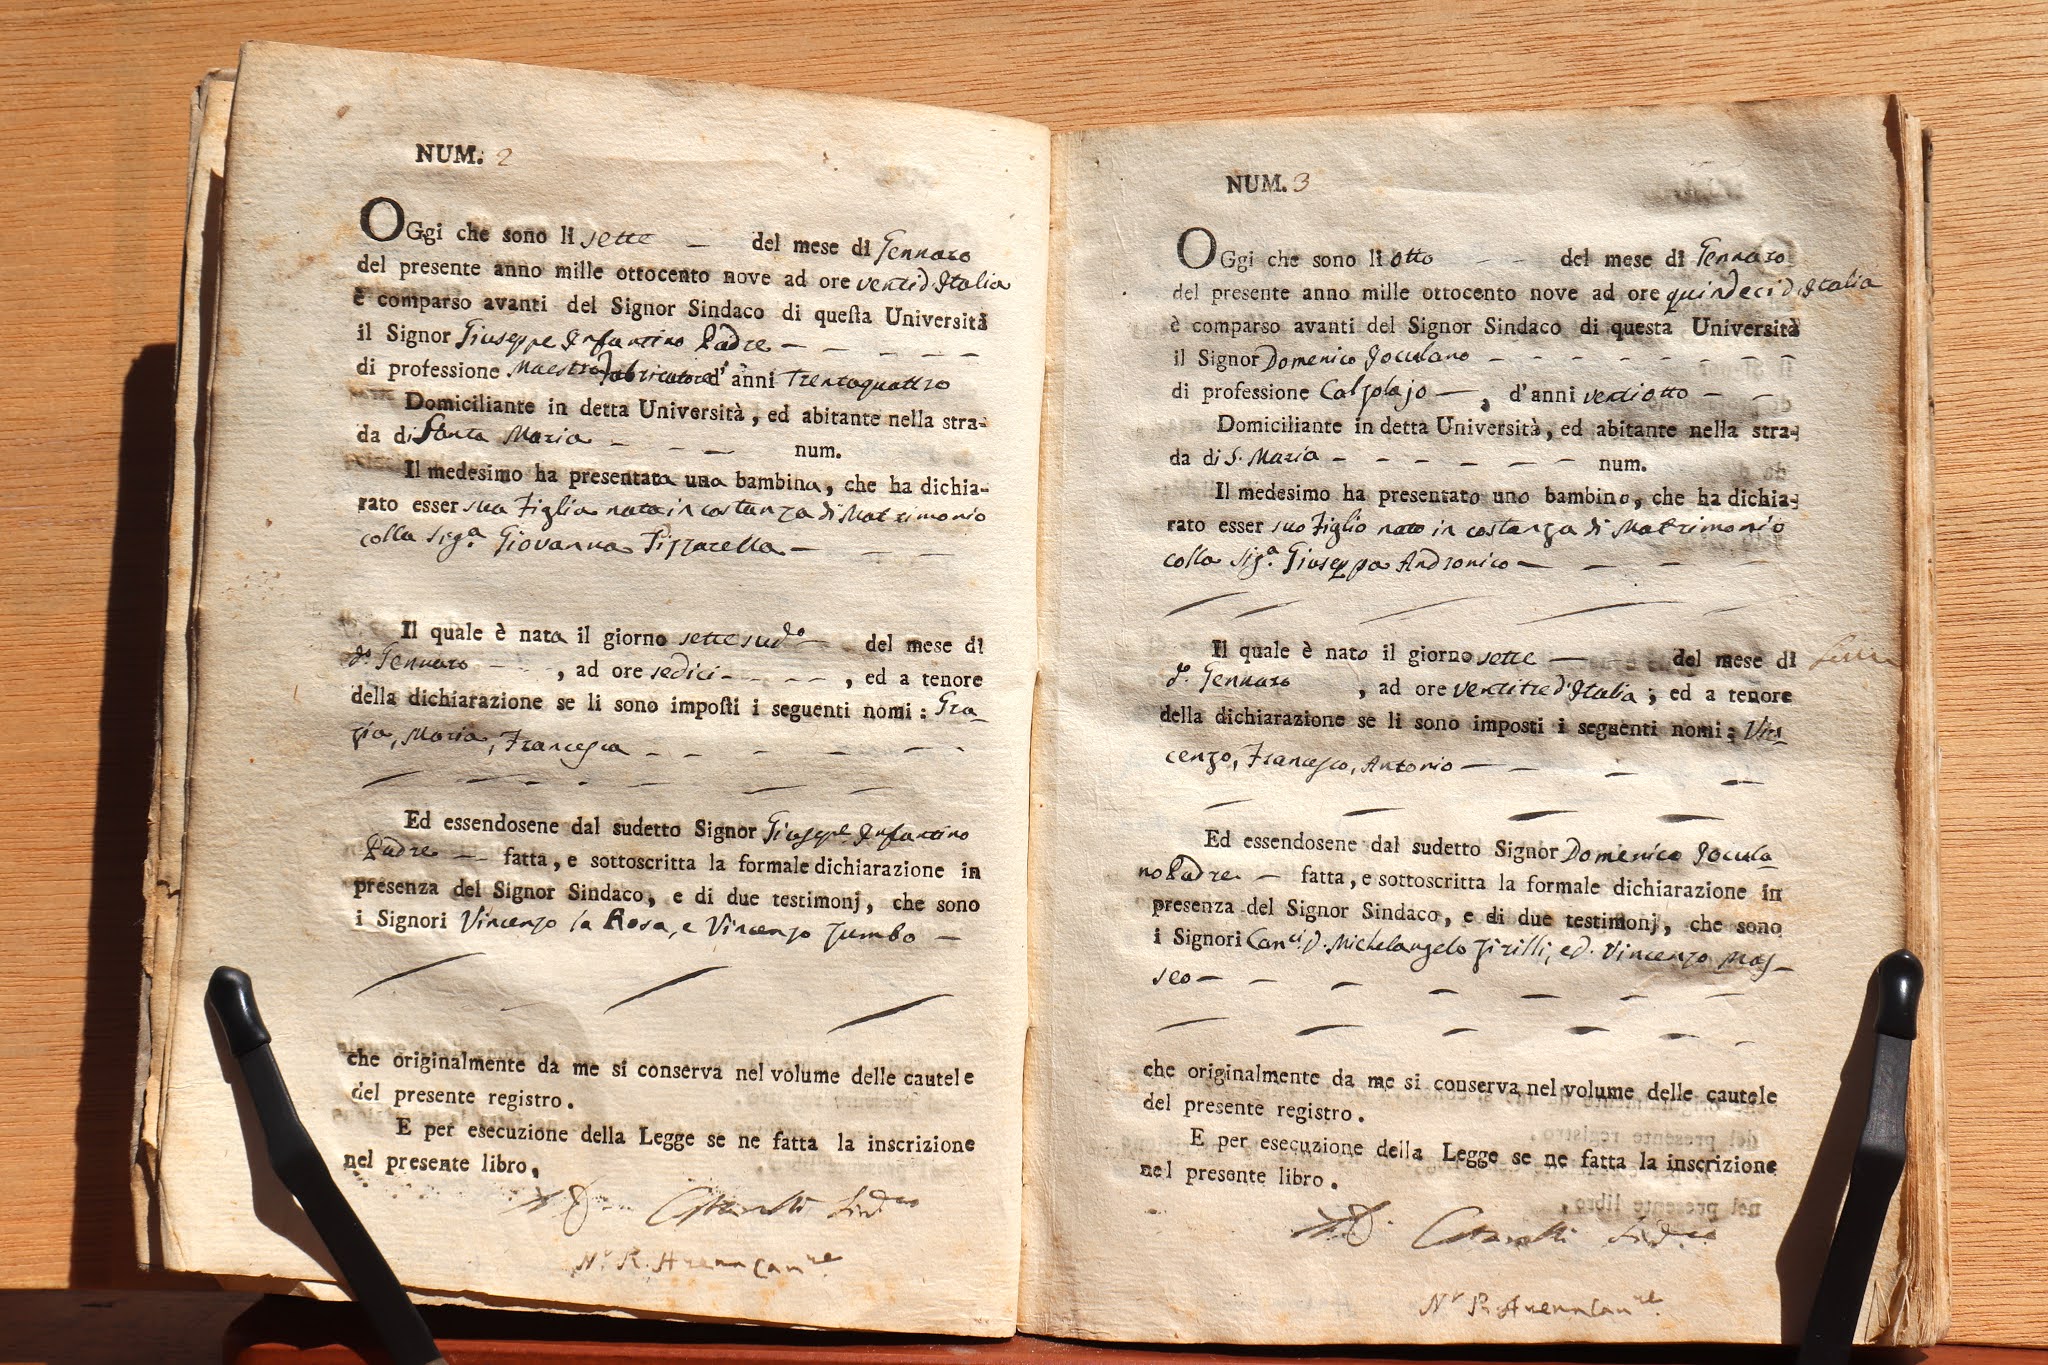 NUM. 2
OGgi che sono li sette — del mese di Gennaro
del presente anno mille ottocento nove ad ore venti d'Italia
è comparso avanti del Signor Sindaco di queſta Università
il Signor Giuseppe Infantino Padre — — — — —
di professione Maestro fabricatore d'anni Trentaquattro
Domiciliante in detta Università, ed abitante nella stra-
da di Santa Maria — — — num.
Il medesimo ha presentata una bambina, che ha dichia-
rato esser sua Figlia nata in costanza di Matrimonio
colla Sig.ª Giovanna — — —
Il quale è nata il giorno sette sud.o — del mese di
d.o Gennaro — — , ad ore sedici — — — , ed a tenore
della dichiarazione se li sono impoſti i seguenti nomi: Gra-
zia, Maria, Francesca — — — — — —
Ed essendosene dal sudetto Signor Giuseppe Infantino
Padre — fatta, e sottoscritta la formale dichiarazione in
presenza del Signor Sindaco, e di due testimonj, che sono
i Signori Vincenzo la Rosa, e Vincenzo Jumbo —
che originalmente da me si conserva nel volume delle cautele
del presente registro.
E per esecuzione della Legge se ne fatta la inscrizione
nel presente libro.
NUM. 3
OGgi che sono li otto — — del mese di Gennaro
del presente anno mille ottocento nove ad ore quindeci d'Italia
è comparso avanti del Signor Sindaco di questa Università
il Signor Domenico Joculano — — — — — — —
di professione Calzolajo — , d'anni ventiotto — — —
Domiciliante in detta Università, ed abitante nella stra-
da di S. Maria — — — — — — num.
Il medesimo ha presentato uno bambino, che ha dichia-
rato esser suo Figlio nato in costanza di Matrimonio
colla Sig.ª Giuseppa Andronico — — — —
Il quale è nato il giorno sette — del mese di
d.o Gennaro , ad ore ventitre d'Italia ; ed a tenore
della dichiarazione se li sono imposti i seguenti nomi: Vin-
cenzo, Francesco, Antonio — — — —
Ed essendosene dal sudetto Signor Domenico Jocula
no Padre — fatta, e sottoscritta la formale dichiarazione in
presenza del Signor Sindaco, e di due testimonj, che sono
i Signori Can.ci D. Michelangelo Zirilli, ed Vincenzo Mas-
seo — — — — — — —
che originalmente da me si conserva nel volume delle cautele
del presente registro.
E per esecuzione della Legge se ne fatta la inscrizione
nel presente libro.